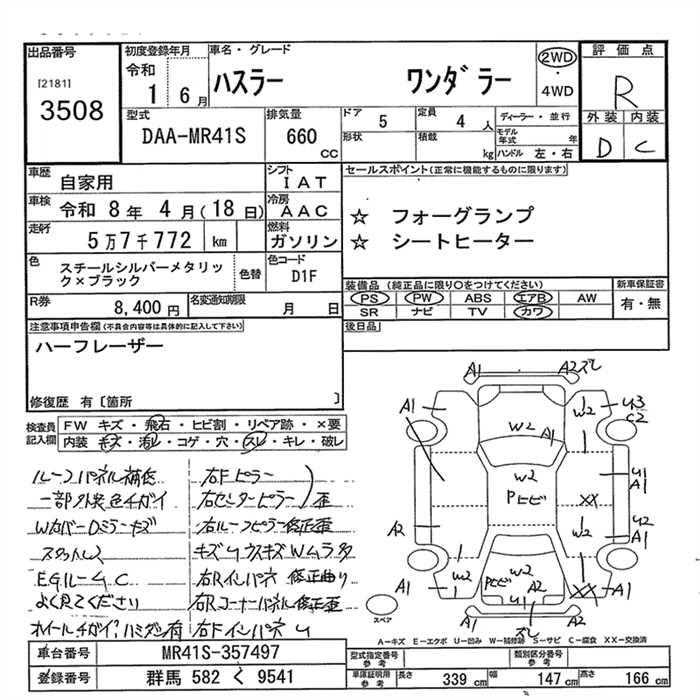 出品番号
[2181]
3508
初度登録年月
令和
1 6月
車名・グレード
ハスラー ワンダラー
2WD
・
4WD
評価点
R
外装 内装
D C
型式
DAA-MR41S
排気量
660
cc
ドア
5
定員
4 人
ディーラー・並行
形状
積載
kg
モデル
年式 年
ハンドル 左・右
車歴
自家用
シフト
IAT
車検
令和 8年 4月(18日)
冷房
AAC
走行
5万7千772 km
燃料
ガソリン
色
スチールシルバーメタリッ
ク×ブラック
色替
色コード
D1F
R券
8,400 円
名変通知期限
月 日
セールスポイント(正常に機能するものに限ります)
☆ フォーグランプ
☆ シートヒーター
装備品(純正品に限り○をつけてください)
PS PW ABS エアB AW
SR ナビ TV カワ
新車保証書
有・無
後日品
注意事項申告欄(不具合内容等は具体的に記入して下さい)
ハーフレーザー
修復歴 有〔箇所 〕
検査員
記入欄
FW キズ・飛石・ヒビ割・リペア跡・×要
内装 キズ・汚れ・コゲ・穴・スレ・キレ・破レ
ルーフパネル補修
一部外装色チガイ
Wカバー Dミラーキズ
スタットレス
EGルームC
よく見てください
ホイールチガイ、ハミダシ有
右Fピラー
右センターピラー 歪
右ルーフピラー修正歪
キズ U ウスキズ Wムラ多
右Rインパネ 修正曲り
右Rコーナーパネル修正歪
右Fインパネ U
A1
A2ズレ
A1
W2
A1
W2
U3
C2
W2
Pヒビ
U1
A1
XX
A2
W2
U2
A1
A1
W2
W2
Pヒビ
A2
U1
XX
A1
A1
ズレ
A2
スペア
A-キズ E-エクボ U-凹み W-補修跡 S-サビ C-腐食 XX-交換済
車台番号
MR41S-357497
登録番号
群馬 582 く 9541
型式指定番号
参考
類別区分番号
参考
車庫証明用
参考
長さ
339 cm
幅
147 cm
高さ
166 cm